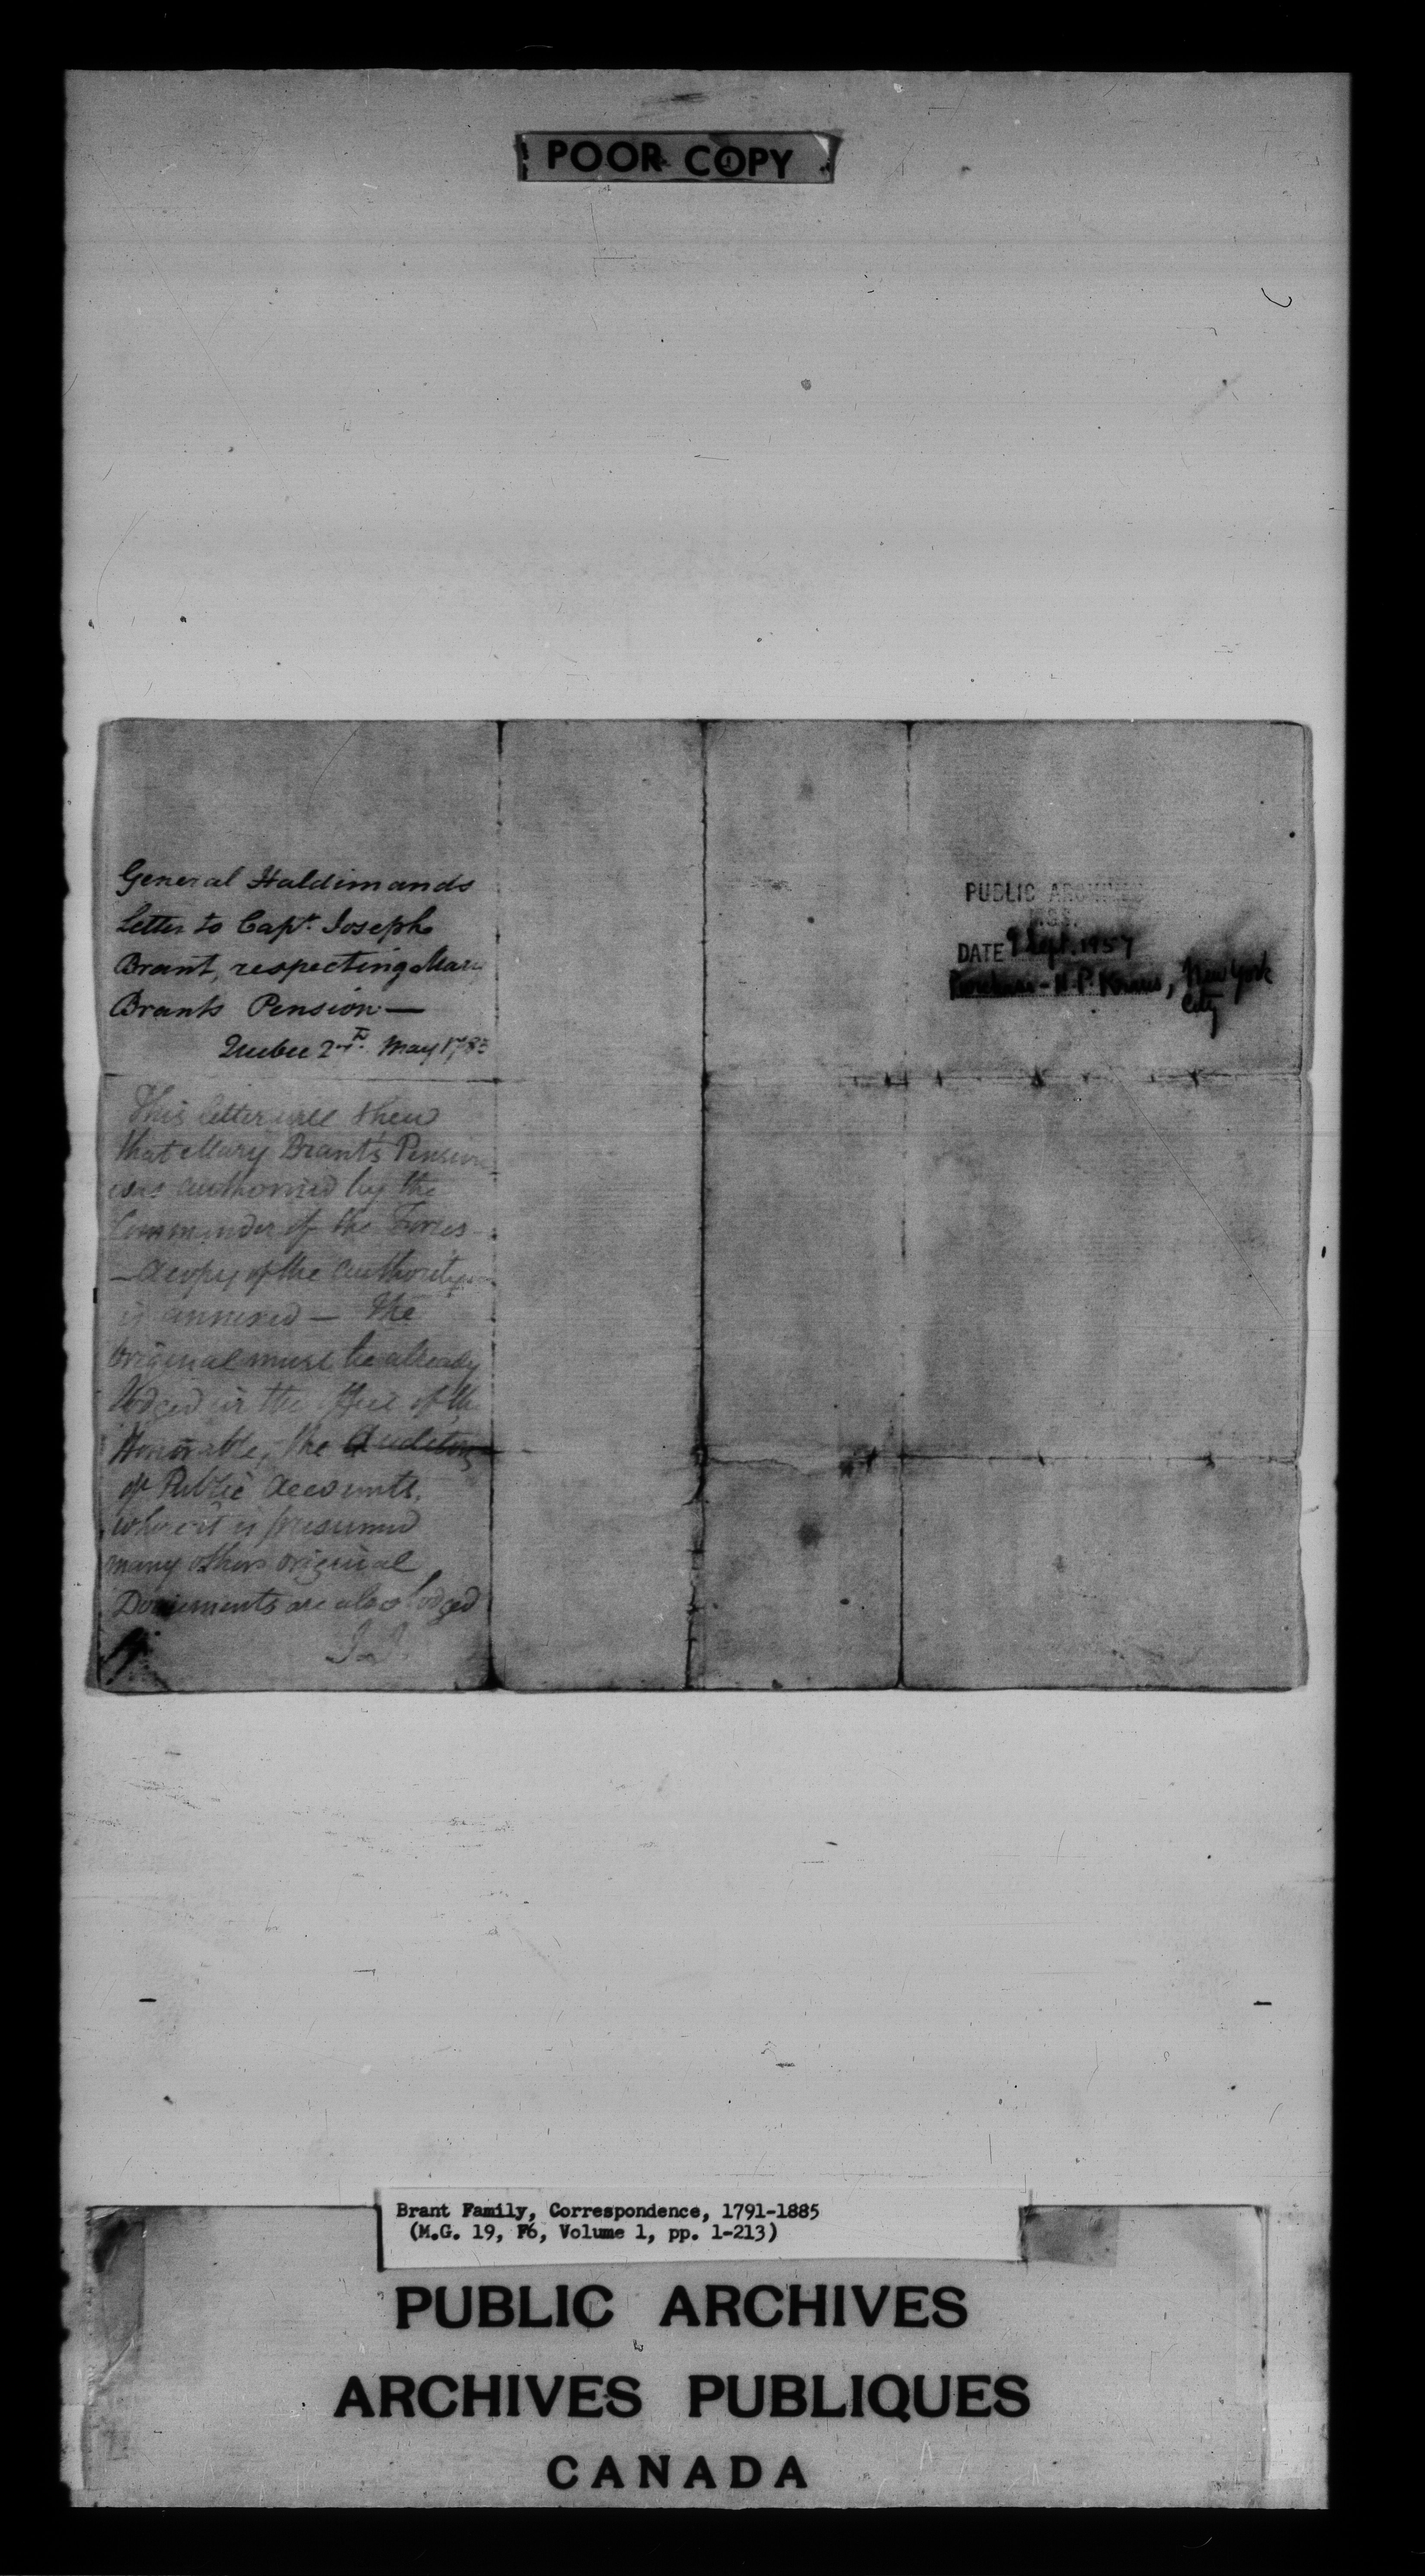 POOR COPY
General Haldimands
Letter to Capt. Joseph
Brant, respecting Mary
Brants Pension —
Quebec 27th May 1783
This letter will shew
that Mary Brants Pension
was authorised by the
Commander of the Forces
— A copy of the Authority
is annexed — the
Original must be already
lodged in the Office of the
Honorable, the Auditors
of Public Accounts,
where it is presumed
many others original
Documents are also lodged
PUBLIC ARCHIVES
MSS.
DATE 9 Sept. 1957
Purchase - H.P. Kraus, New York
City
Brant Family, Correspondence, 1791-1885
(M.G. 19, F6, Volume 1, pp. 1-213)
PUBLIC ARCHIVES
ARCHIVES PUBLIQUES
CANADA